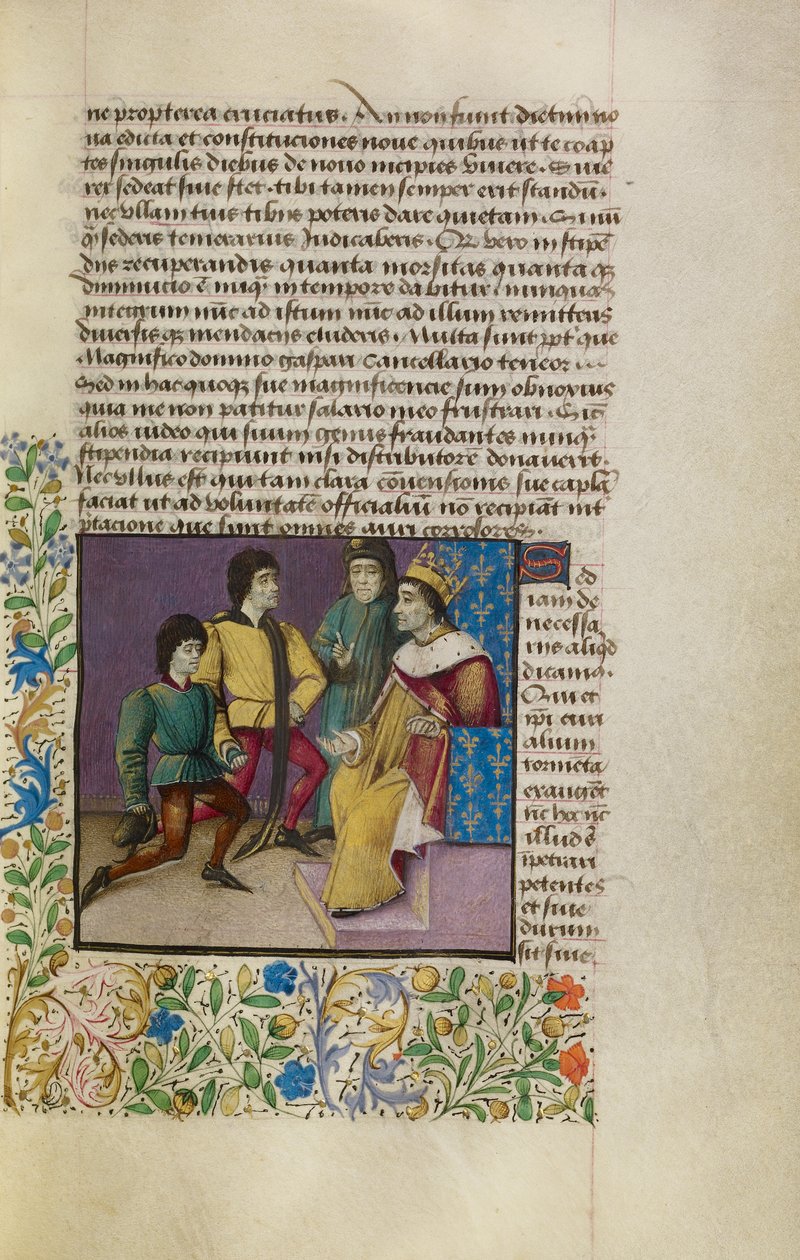 ne propterea cruciatus. An non fiunt dietim no
ua edicta et constituciones noue quibus ut te coap
tes singulis diebus de nouo incipies viuere. Siue
rex sedeat siue stet. tibi tamen semper erit standū.
nec vllam tuis tibijs poteris dare quietem. Si nū
q̄ sederis temerarius Judicaberis. Or vero in stipē
dijs recuperandis quanta morsitas quanta qꝫ
diminucio ē niqꝫ in tempore dabitur. nunquā
integrum nūc ad istum nūc ad illum remitteris
diuersis qꝫ mendacijs eluderis. Multa sunt ꝓpt' que
Magnifico domino gaspari Cancellario teneor
Sed in hac quoqꝫ sue magnificencie sum obnoxius
quia me non patitur salario meo frustrari. Sic̄
alios video qui suum genus fraudantes nunq̄
stipendia recipiunt nisi distributorē donauerit.
Nec vllus est qui tam clara cōuensionis sue capla
faciat ut ad voluntatē officialiū nō recipiāt int
ptacione que sunt omnes auri
Sed
iam de
necessa
rijs aliqd
dicam.
Qui et
ipi curi
alium
tormēta
exaugēt
nc̄ hoc nc̄
illud ē
īpetrari
petentes
et siue
durum
sit siue